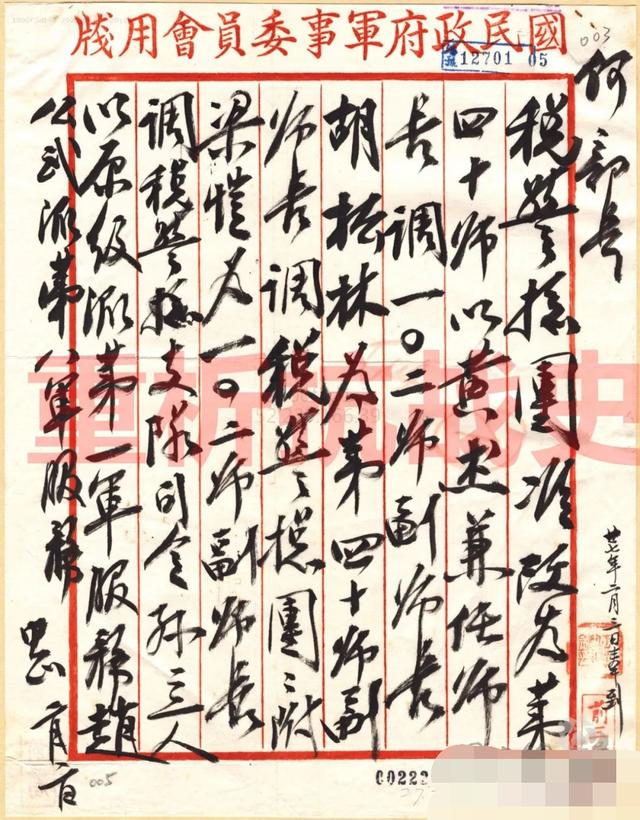 國民政府軍事委員會用牋
12701 05
003
何部長
稅警總團准改為第
四十師以黃杰兼任師
長調一〇二師副師長
胡松林為第四十師副
師長調稅警總團〻附
梁愷為一〇二師副師長
調稅警總支隊司令孫立人
以原級派第一軍服務趙
公武派第八軍服務
中正
廿七年二月三日 到
005
00222